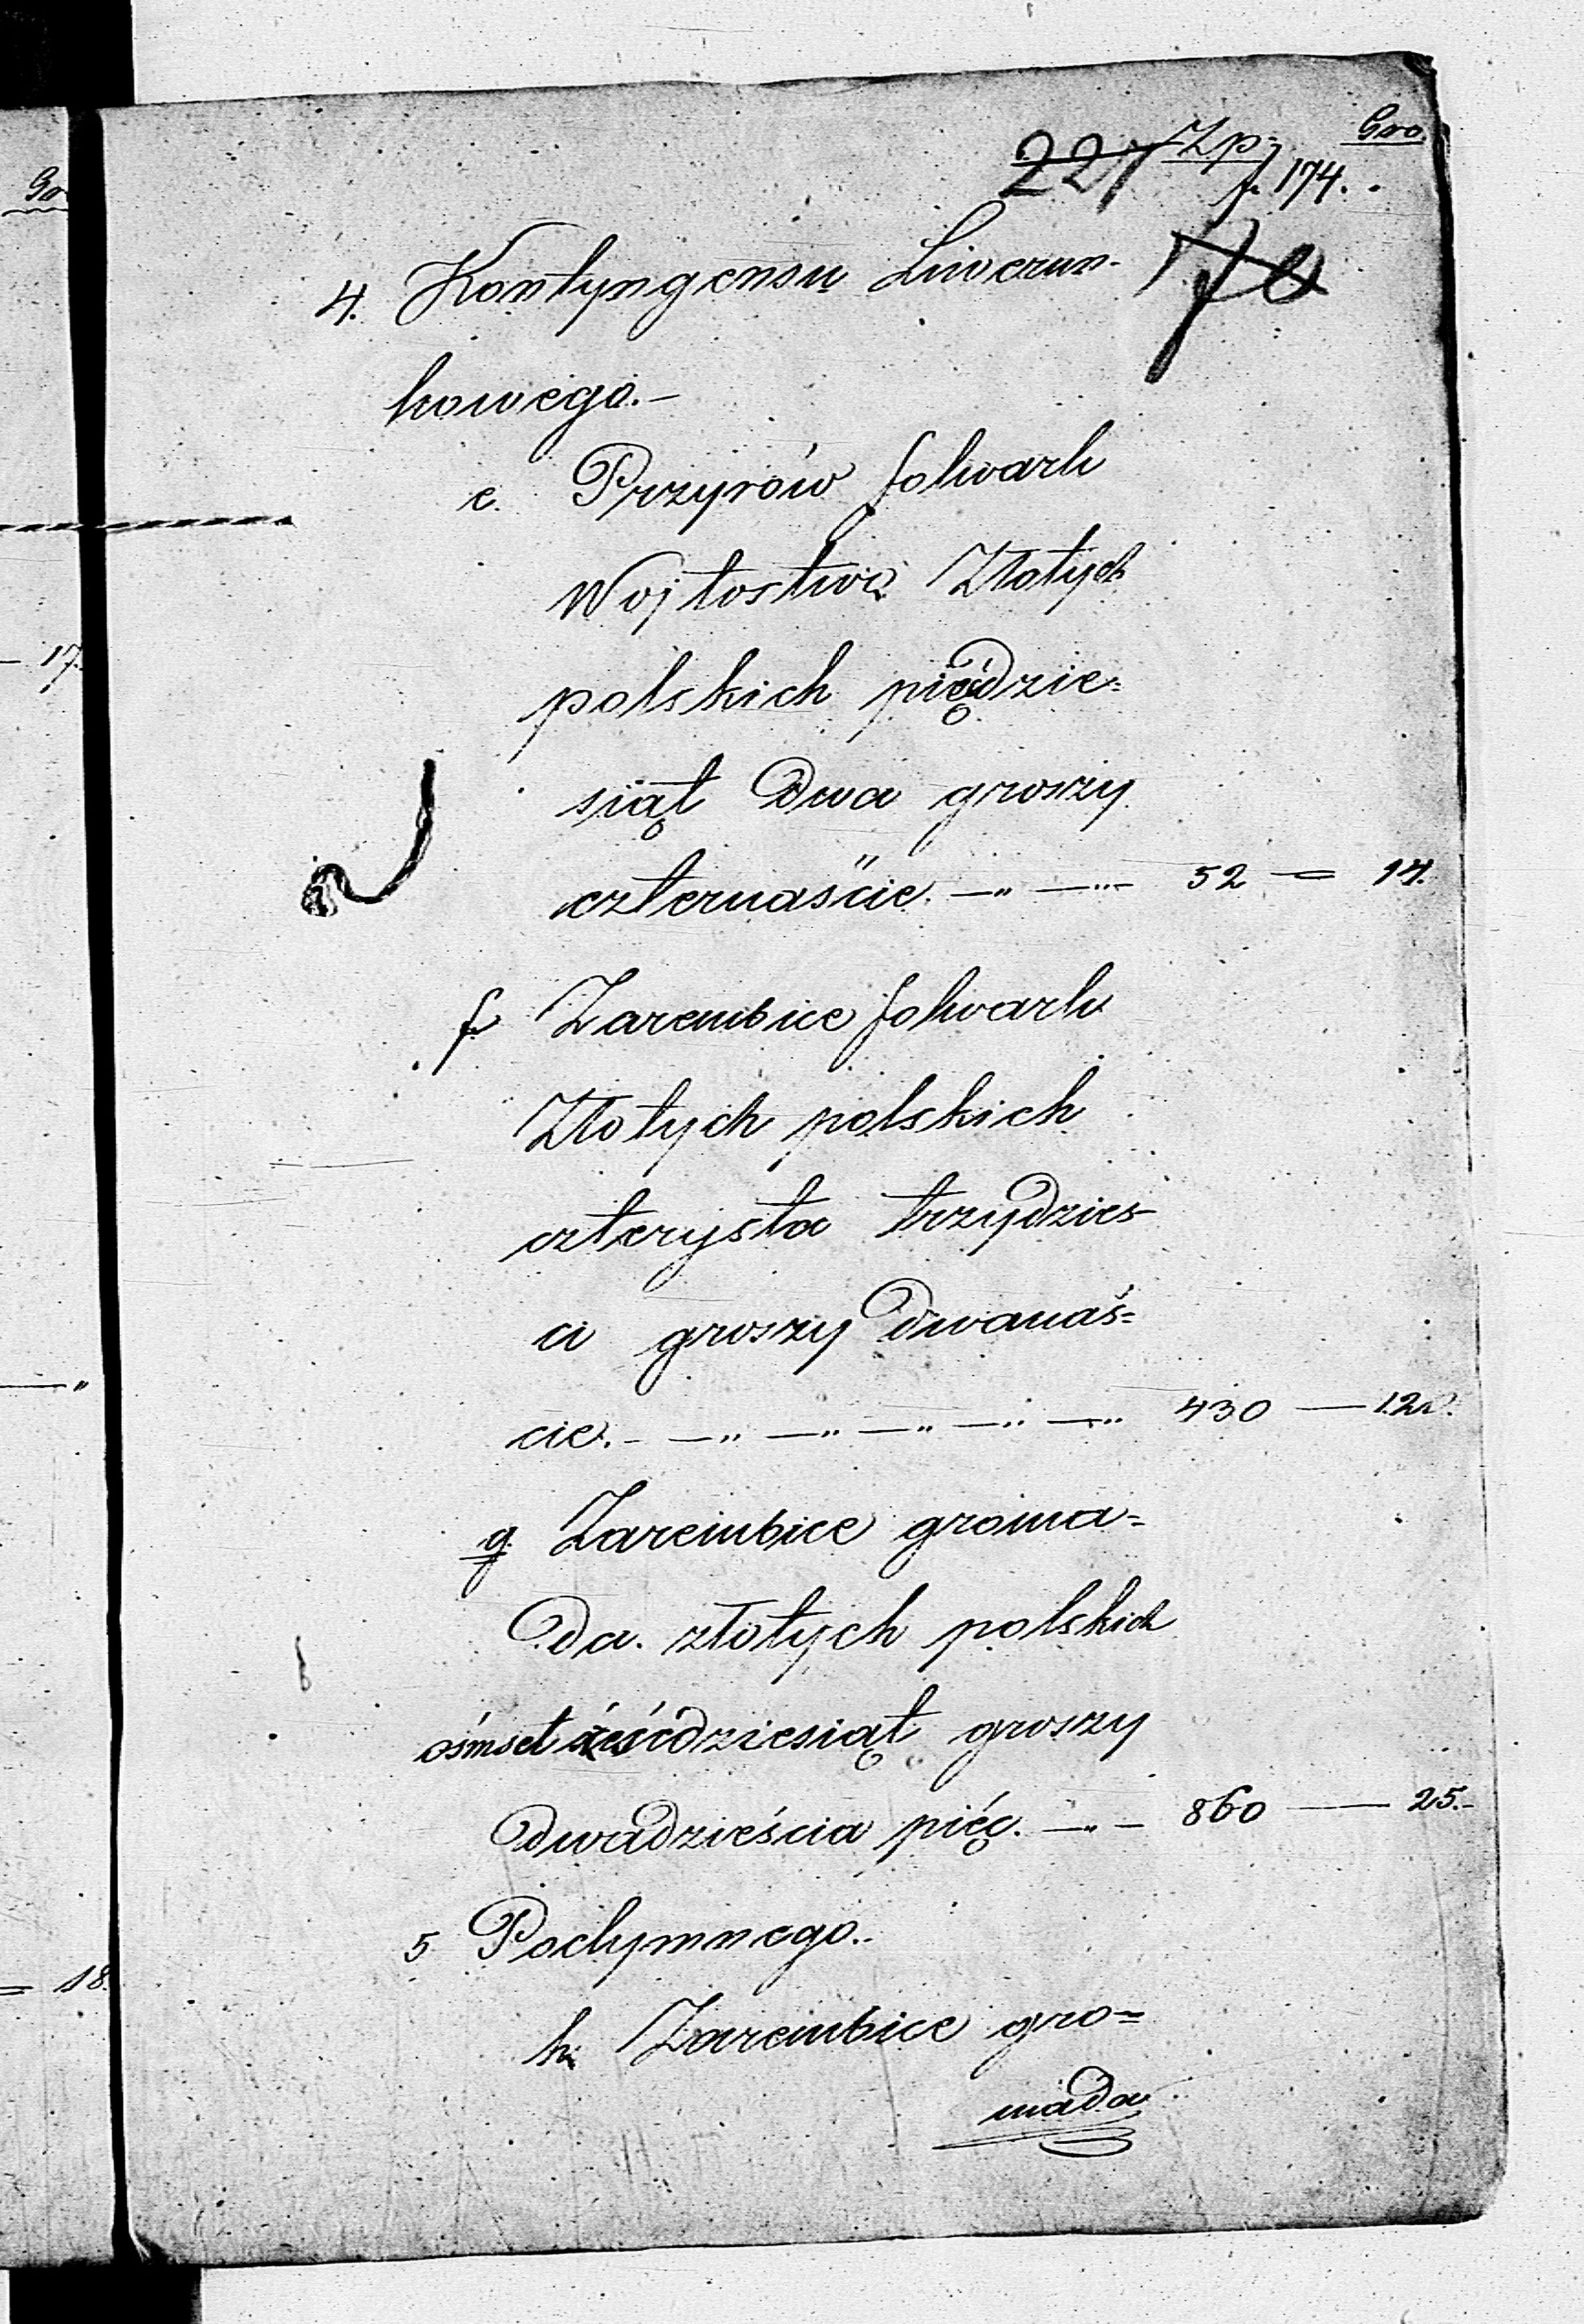 Gro.
227 Zp.
f. 174.
Gr
4. Kontyngensu Liwerun-
kowego.—
e. Przyrów folwark
Wojtostwo Złotych
polskich pięćdzie=
siąt dwa groszy
czternaście. —„ —„— 52 = 14.
17.
f Zarembice folwark
Złotych polskich
czterysta trzydzieś-
ci groszy dwanaś=
cie.- —„ —„ —„ —„ —„ 430 — 12.
g. Zarembice groma=
da. złotych polskich
ośmset sześćdziesiąt groszy
dwadzieścia pięć. —„— 860 — 25.-
5 Podymnego..
= 18.
h. Zarembice gro=
mada